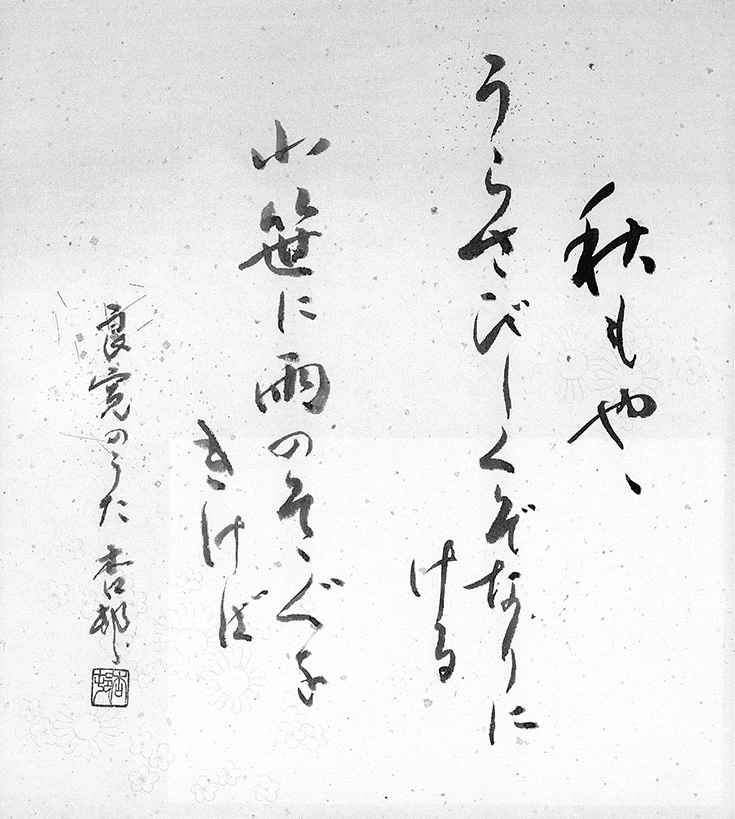 秋もやゝ
うらさびしくぞなりに
ける
小笹に雨のそゝぐを
きけば
良寛のうた 杏邨